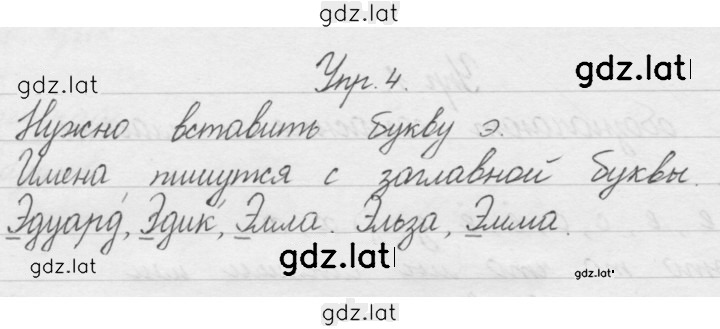 gdz.lat
gdz.lat Упр. 4. gdz.lat
Нужно вставить букву э.
Имена пишутся с заглавной буквы.
Эдуард, Эдик, Элла. Эльза, Эмма.
gdz.lat gdz.lat gdz.lat
gdz.lat